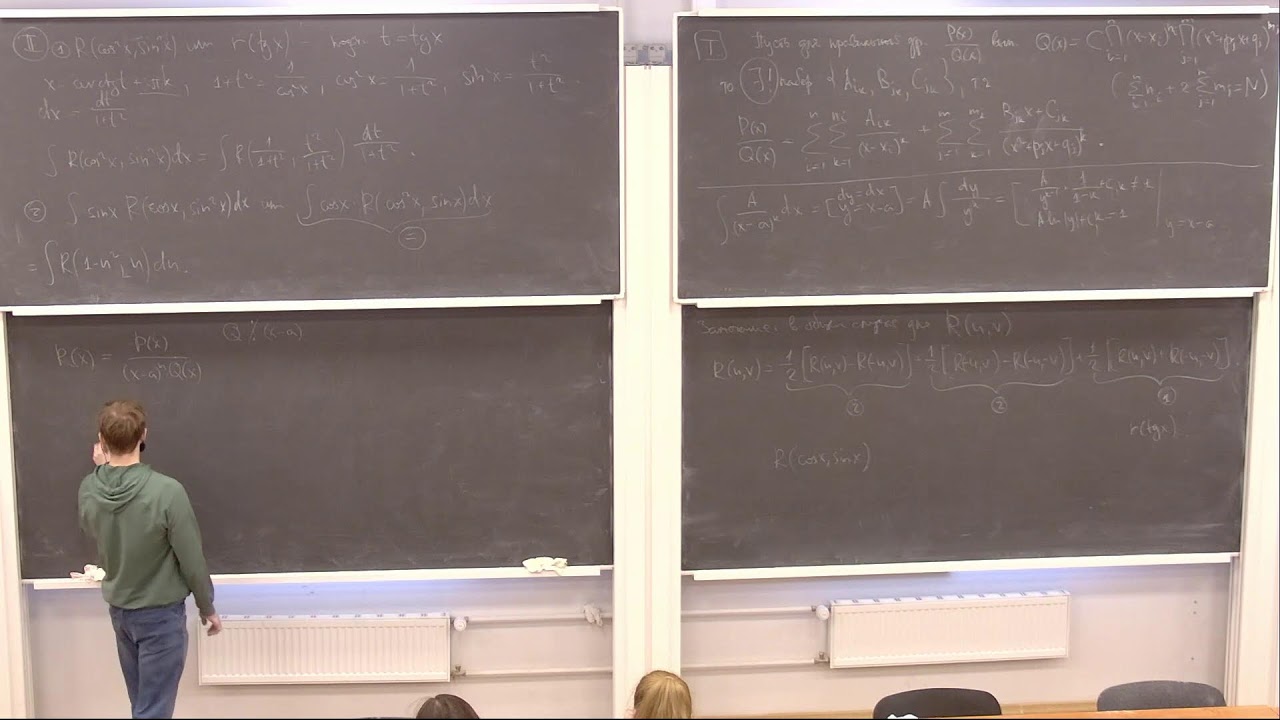 II ① R(cos²x, sin²x) или r(tg x) – подст. t = tg x
x = arctg t + πk, 1+t² = 1/cos²x, cos²x = 1/(1+t²), sin²x = t²/(1+t²)
dx = dt/(1+t²)
∫ R(cos²x, sin²x)dx = ∫ R(1/(1+t²), t²/(1+t²)) dt/(1+t²).
② ∫ sinx R(cosx, sin²x)dx или ∫ cosx · R(cos²x, sinx)dx
=
= ∫ R(1-u², u)du.
I Пусть для правильной др. P(x)/Q(x) вып. Q(x) = C∏(x-x_i)^{n_i} ∏(x²+p_jx+q_j)^{m_j}
то ∃! набор {A_{ik}, B_{jk}, C_{jk}}, т.ч.
(∑n_i + 2∑m_j = N)
P(x)/Q(x) = ∑∑ A_{ik}/(x-x_i)^k + ∑∑ (B_{jk}x + C_{jk})/(x²+p_jx+q_j)^k.
∫ A/(x-a)^k dx = [dy = dx, y = x-a] = A ∫ dy/y^k = [
y = x-a
R(x) = P(x)/((x-a)^n Q(x))
Замечание: в общем случае для R(u,v)
R(u,v) = 1/2 [R(u,v) - R(-u,v)] + 1/2 [R(-u,v) - R(-u,-v)] + 1/2 [R(u,v) + R(-u,-v)]
② ② ①
r(tg x).
R(cosx, sinx)